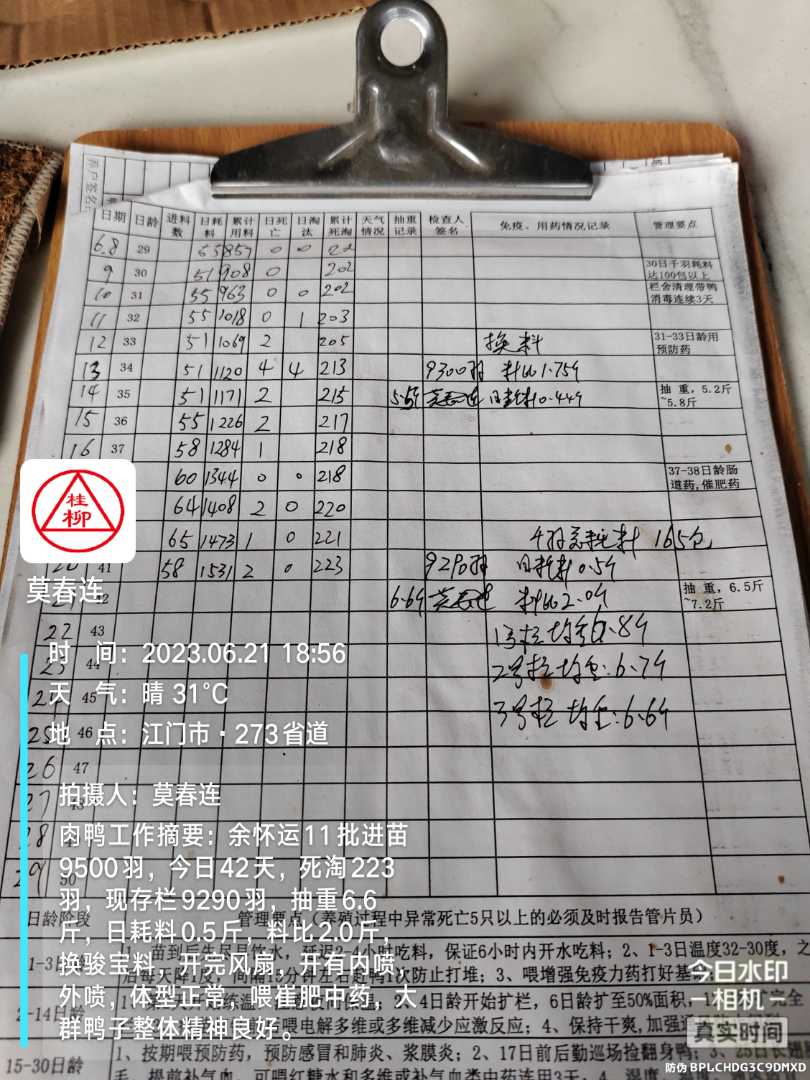 日期 日龄 进料数 日耗料 累计用料 日死亡 日淘汰 累计死淘 天气情况 抽重记录 检查人签名 免疫、用药情况记录 管理要点
6.8 29 857 0 0
9 30 51 908 0 202 30日千羽耗料达100包以上
10 31 55 963 0 0 202 栏舍清理带鸭消毒连续3天
11 32 55 1018 0 1 203
12 33 51 1069 2 205 换料 31-33日龄用预防药
13 34 51 1120 4 4 213 9300羽 料比1.75斤
14 35 51 1171 2 215 5.5斤 莫春连 日耗料0.44斤 抽重,5.2斤~5.8斤
15 36 55 1226 2 217
16 37 58 1284 1 218
60 1344 0 0 218 37-38日龄肠道药,催肥药
64 1408 2 0 220
65 1473 1 0 221 165包
20 41 58 1531 2 0 223 9290羽 日耗料0.5斤
6.6斤 莫春连 料比2.0斤 抽重,6.5斤~7.2斤
22 43 1号栏均重6.8斤
44 2号栏均重:6.7斤
46 3号栏均重:6.6斤
26 47
27
28
29 50
桂柳
莫春连
时 间:2023.06.21 18:56
天 气:晴 31℃
地 点:江门市·273省道
拍摄人:莫春连
肉鸭工作摘要:余怀运11批进苗
9500羽,今日42天,死淘223
羽,现存栏9290羽,抽重6.6
斤,日耗料0.5斤,料比2.0斤.
换骏宝料,开完风扇,开有内喷,
外喷,体型正常,喂崔肥中药,大
群鸭子整体精神良好。
日龄阶段 管理要点(养殖过程中异常死亡5只以上的必须及时报告管片员)
吃料,保证6小时内开水吃料;2、1-3日温度32-30度,
防止打堆;3、喂增强免疫力药打好基
2-14日龄 4日龄开始扩栏,6日龄扩至50%面积,
喂电解多维或多维减少应激反应;4、保持干爽,加强
15-30日龄 1、按期喂预防药,预防感冒和肺炎、浆膜炎;2、17日前后勤巡场捡翻身鸭;
今日水印
相机
真实时间
防伪 BPLCHDG3C9DMXD